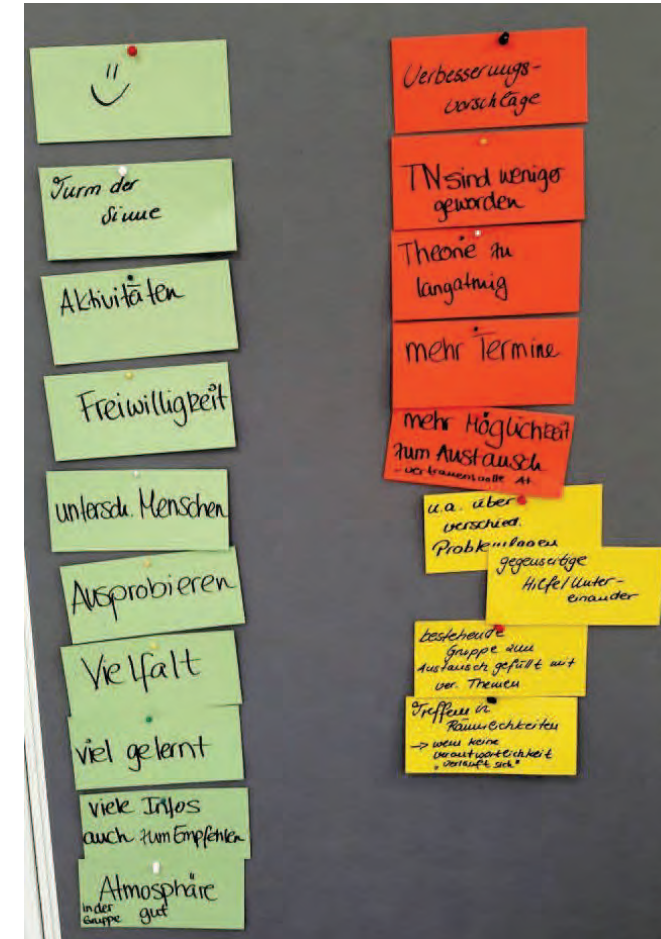 Turm der
Sinne
Aktivitäten
Freiwilligkeit
untersch. Menschen
Ausprobieren
Vielfalt
viel gelernt
viele Infos
auch zum Empfehlen
Atmosphäre
in der
Gruppe gut
Verbesserungs-
vorschläge
TN sind weniger
geworden
Theorie zu
langatmig
mehr Termine
mehr Möglichkeit
zum Austausch
- vertrauensvolle At.
u.a. über
verschied.
Problemlagen
gegenseitige
Hilfe/Unter-
einander
bestehende
Gruppe zum
Austausch gefüllt mit
ver. Themen
Treffen in
Räumlichkeiten
→ wenn keine
Verantwortlichkeit
"verläuft sich"